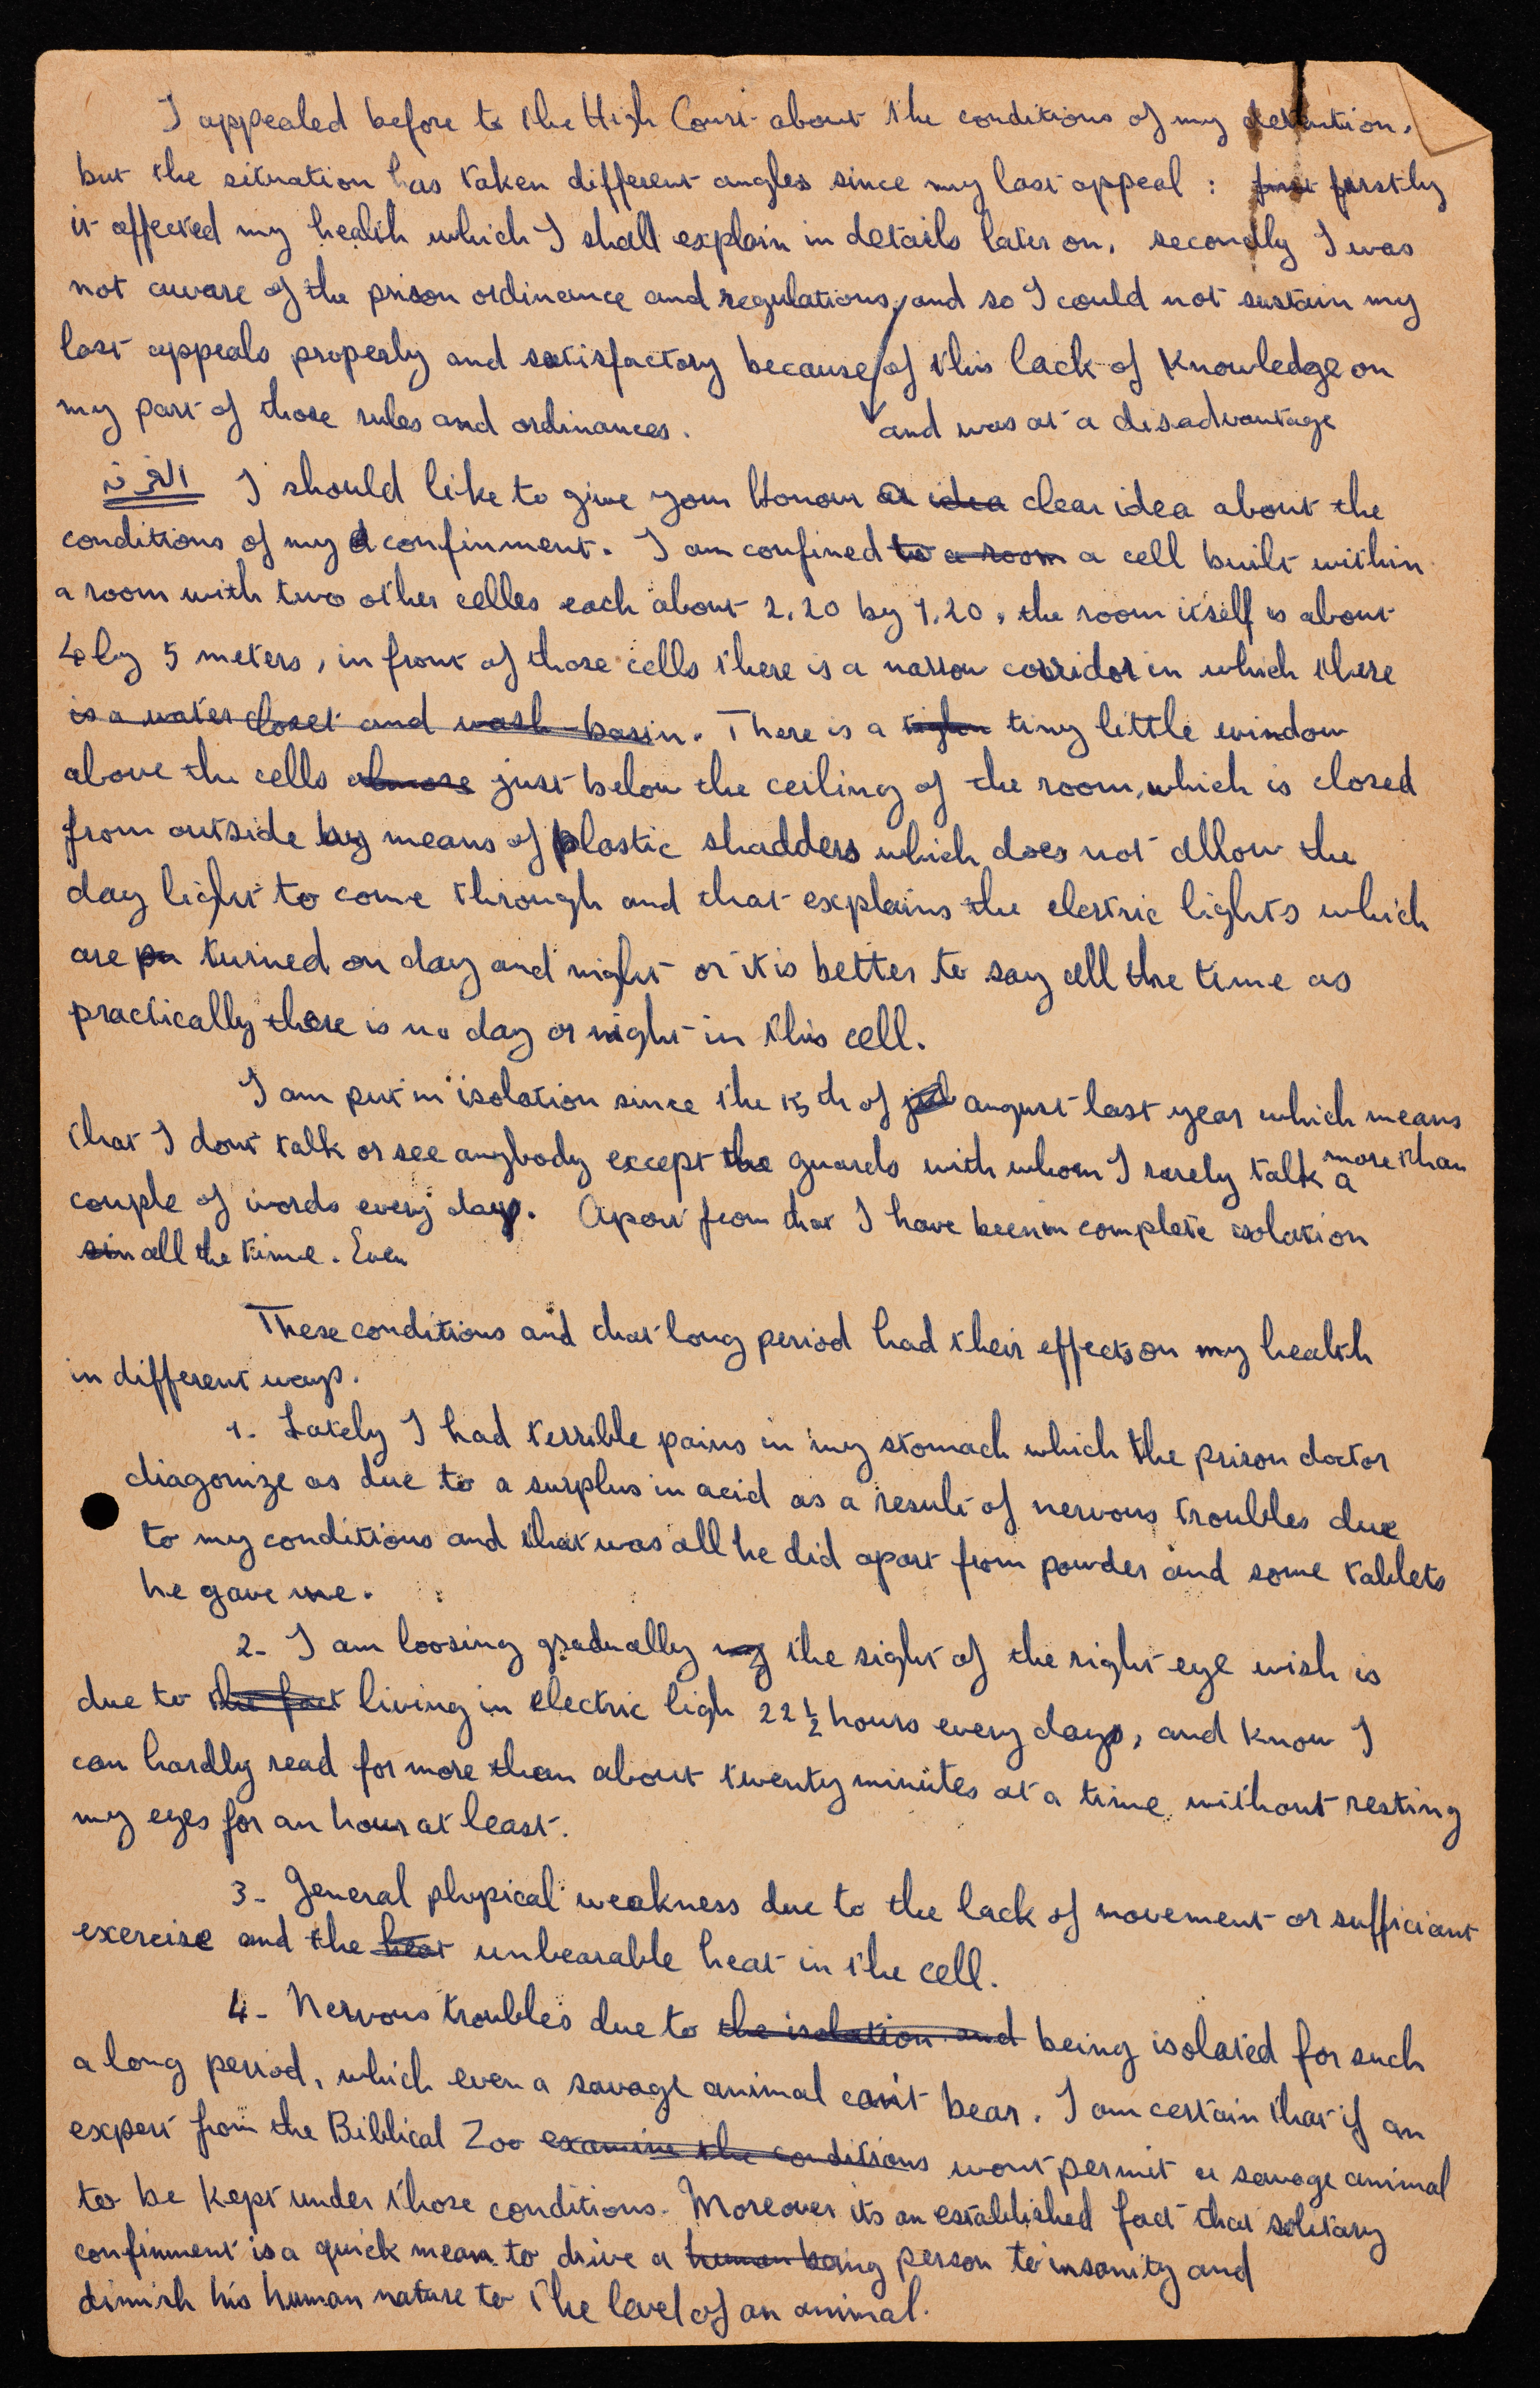 I appealed before to the High Court about the conditions of my detention,
but the situation has taken different angles since my last appeal : first firstly
it affected my health which I shall explain in details later on, secondly I was
not aware of the prison ordinance and regulations, and so I could not sustain my
last appeals properly and satisfactory because of this lack of knowledge on
my part of those rules and ordinances.
and was at a disadvantage
I should like to give your Honour a idea clear idea about the
conditions of my confinment. I am confined to a room a cell built within
a room with two other celles each about 2.20 by 1.20, the room itself is about
4 by 5 meters, in front of those cells there is a narrow corridor in which there
is a water closet and wash-basin. There is a tiny little window
above the cells almost just below the ceiling of the room, which is closed
from outside by means of plastic shadders which does not allow the
day light to come through and that explains the electric lights which
are turned on day and night or it is better to say all the time as
practically there is no day or night in this cell.
I am put in isolation since the 15th of august last year which means
that I dont talk or see anybody except the guards with whom I rarely talk more than
a
couple of words every day. Apart from that I have been in complete isolation
sin all the time. Even
These conditions and that long period had their effects on my health
in different ways.
1. Lately I had terrible pains in my stomach which the prison doctor
diagonize as due to a surplus in acid as a result of nervous troubles due
to my conditions and that was all he did apart from powder and some tablets
he gave me.
2- I am loosing gradually my the sight of the right eye wish is
due to the fact living in electric ligh 22½ hours every days, and know I
can hardly read for more than about twenty minutes at a time without resting
my eyes for an hour at least.
3- General physical weakness due to the lack of movement or sufficiant
exercise and the heat unbearable heat in the cell.
4- Nervous troubles due to the isolation and being isolated for such
a long period, which even a savage animal can't bear. I am certain that if an
expert from the Biblical Zoo examine the conditions wont permit a savage animal
to be kept under those conditions. Moreover its an established fact that solitary
confinment is a quick mean to drive a human being person to insanity and
dimish his human nature to the level of an animal.